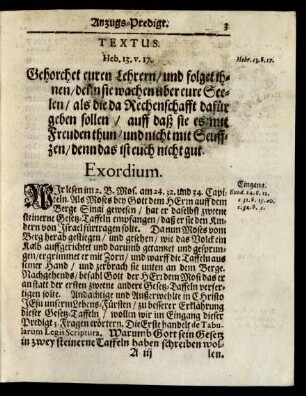 Anzugs-Predigt. 3
TEXTUS.
Heb. 13. v. 17.
Hebr. 13. v. 17.
Gehorchet euren Lehrern/ und folget ih-
nen/ denn sie wachen über eure See-
len/ als die da Rechenschafft dafür
geben sollen/ auff daß sie es mit
Freuden thun/ und nicht mit Seuff-
zen/ denn das ist euch nicht gut.
Exordium.
Eingang.
WIr lesen im 2. B. Mos. am 24. 32. und 34. Capi-
teln. Als Moses bey Gott dem HErrn auff dem
Berge Sinai gewesen/ hat er daselbst zweene
steinerne Gesetz-Taffeln empfangen/ daß er sie den Kin-
dern von Israel fürtragen solte. Da nun Moses vom
Berg herab gestiegen/ und gesehen/ wie das Volck ein
Kalb auffgerichtet und darumb getantzt und gesprun-
gen/ ergrimmet er mit Zorn/ und warff die Taffeln aus
seiner Hand/ und zerbrach sie unten an dem Berge.
Nachgehends/ befahl Gott der HErr dem Mosi das er
an statt der ersten zweene andere Gesetz-Taffeln verfer-
tigen solte. Andächtige und Auserwehlte in Christo
JEsu unserm Lebens-Fürsten/ zu besserer Erklährung
dieser Gesetz-Taffeln/ wollen wir im Eingang dieser
Predigt 3 Fragen erörtern. Die Erste handelt de Tabu-
larum Legis Scriptura. Warumb Gott sein Gesetz
in zwey steinerne Taffeln haben schreiben wol-
A iij len.